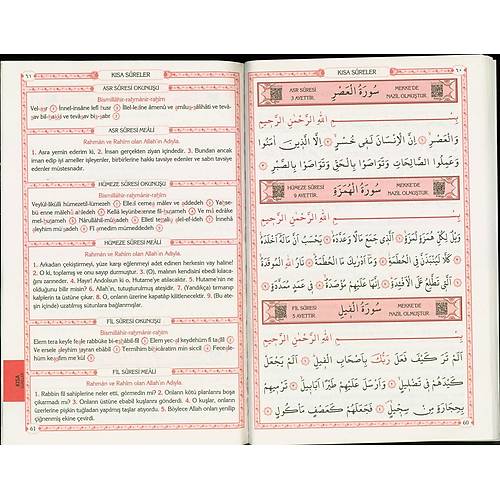 KISA SÛRELER
٦٠
ASR SÛRESİ
3 AYETTİR.
سُورَةُ الْعَصْرِ
MEKKE'DE
NAZİL OLMUŞTUR.
بِسْمِ اللّٰهِ الرَّحْمٰنِ الرَّحِيمِ
وَالْعَصْرِ ۝ اِنَّ الْاِنْسَانَ لَفٖى خُسْرٍ ۝ اِلَّا الَّذٖينَ اٰمَنُوا
وَعَمِلُوا الصَّالِحَاتِ وَتَوَاصَوْا بِالْحَقِّ وَتَوَاصَوْا بِالصَّبْرِ
HÜMEZE SÛRESİ
9 AYETTİR.
سُورَةُ الْهُمَزَةِ
MEKKE'DE
NAZİL OLMUŞTUR.
بِسْمِ اللّٰهِ الرَّحْمٰنِ الرَّحِيمِ
وَيْلٌ لِكُلِّ هُمَزَةٍ لُمَزَةٍ ۝ اَلَّذٖى جَمَعَ مَالًا وَعَدَّدَهُ ۝ يَحْسَبُ اَنَّ مَالَهُٓ اَخْلَدَهُ
كَلَّا لَيُنْبَذَنَّ فِى الْحُطَمَةِ ۝ وَمَٓا اَدْرٰيكَ مَا الْحُطَمَةُ ۝ نَارُ اللّٰهِ الْمُوقَدَةُ
اَلَّتٖى تَطَّلِعُ عَلَى الْاَفْـِٔدَةِ ۝ اِنَّهَا عَلَيْهِمْ مُؤْصَدَةٌ ۝ فٖى عَمَدٍ مُمَدَّدَةٍ
FİL SÛRESİ
5 AYETTİR.
سُورَةُ الْفٖيلِ
MEKKE'DE
NAZİL OLMUŞTUR.
بِسْمِ اللّٰهِ الرَّحْمٰنِ الرَّحِيمِ
اَلَمْ تَرَ كَيْفَ فَعَلَ رَبُّكَ بِاَصْحَابِ الْفٖيلِ ۝ اَلَمْ يَجْعَلْ
كَيْدَهُمْ فٖى تَضْلٖيلٍ ۝ وَاَرْسَلَ عَلَيْهِمْ طَيْرًا اَبَابٖيلَ ۝ تَرْمٖيهِمْ
بِحِجَارَةٍ مِنْ سِجّٖيلٍ ۝ فَجَعَلَهُمْ كَعَصْفٍ مَأْكُولٍ
60
٦١
KISA SÛRELER
ASR SÛRESİ OKUNUŞU
Bismillâhir-raḥmânir-raḥîm
Vel-aṣr 1 İnnel-insâne lefî ḫusr 2 İllel-leẕîne âmenû ve amiluṣ-ṣâliḥâti ve tevâ-
ṣav bil-ḥaḳḳi ve tevâṣav biṣ-ṣabr 3
ASR SÛRESİ MEÂLİ
Rahmân ve Rahîm olan Allah'ın Adıyla.
1. Asra yemin ederim ki, 2. İnsan gerçekten ziyan içindedir. 3. Bundan ancak
iman edip iyi ameller işleyenler, birbirlerine hakkı tavsiye edenler ve sabrı tavsiye
edenler müstesnadır.
HÜMEZE SÛRESİ OKUNUŞU
Bismillâhir-raḥmânir-raḥîm
Veylül-likülli hümezetil-lümezeh 1 Elleẕî cemea mâlev ve addedeh 2 Yaḥse-
bü enne mâlehû aḫledeh 3 Kellâ leyünbeẕenne fil-ḥuṭameh 4 Ve mâ edrâke
mel-ḥuṭameh 5 Nârullâhil-mûḳadeh 6 Elletî taṭṭaliu alel-ef'ideh 7 İnnehâ
aleyhim mü'ṣadeh 8 Fî amedim mümeddedeh 9
HÜMEZE SÛRESİ MEÂLİ
Rahmân ve Rahîm olan Allah'ın Adıyla.
1. Arkadan çekiştirmeyi, yüze karşı eğlenmeyi adet edinen herkesin vay haline!
2. O ki, toplamış ve onu sayıp durmuştur. 3. (O), malının kendisini ebedi kılaca-
ğını zanneder. 4. Hayır! Andolsun ki o, Hutame'ye atılacaktır. 5. Hutame'nin ne
olduğunu bilir misin? 6. Allah'ın, tutuşturulmuş ateşidir. 7. (Yandıkça) tırmanıp
kalplerin ta üstüne çıkar. 8. O, onların üzerine kapatılıp kilitlenecektir. 9. (Bu ate-
şin içinde) uzatılmış sütunlara bağlanmışlardır.
FİL SÛRESİ OKUNUŞU
Bismillâhir-raḥmânir-raḥîm
Elem tera keyfe feale rabbüke bi-eṣḥâbil-fîl 1 Elem yec-al keydehüm fî taḍlîl 2
Ve ersele aleyhim ṭayran ebâbîl 3 Termîhim biḥicâratim min siccîl 4 Feceale-
hüm keaṣfim me'kûl 5
FİL SÛRESİ MEÂLİ
Rahmân ve Rahîm olan Allah'ın Adıyla.
1. Rabbin fil sahiplerine neler etti, görmedin mi? 2. Onların kötü planlarını boşa
çıkarmadı mı? 3. Onların üstüne ebabil kuşlarını gönderdi. 4. O kuşlar, onların
üzerlerine pişkin tuğladan yapılmış taşlar atıyordu. 5. Böylece Allah onları yenilip
çiğnenmiş ekine çevirdi.
61
KISA